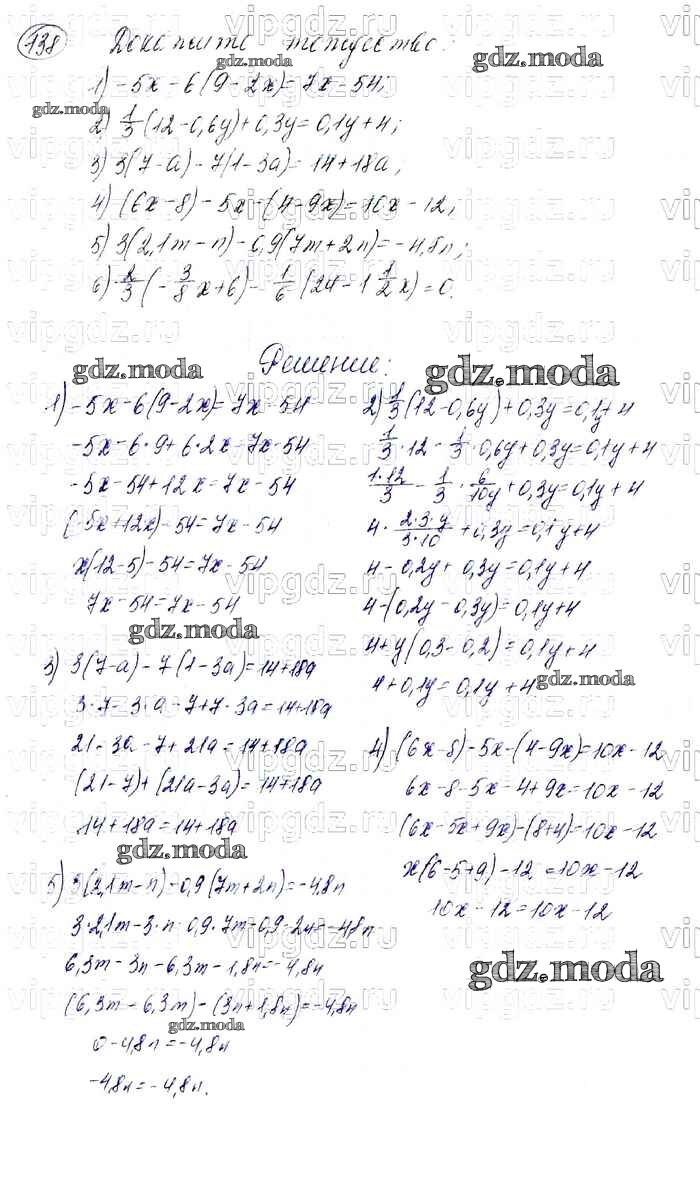 138 Докажите тождество:
1) -5x-6(9-2x)=7x-54;
2) 1/3(12-0,6y)+0,3y=0,1y+4;
3) 3(7-a)-7(1-3a)=14+18a;
4) (6x-8)-5x-(4-9x)=10x-12;
5) 3(2,1m-n)-0,9(7m+2n)=-4,8n;
6) 2/3(-3/8x+6)-1/6(24-1 1/2x)=0.
Решение:
1) -5x-6(9-2x)=7x-54
-5x-6·9+6·2x=7x-54
-5x-54+12x=7x-54
(-5x+12x)-54=7x-54
x(12-5)-54=7x-54
7x-54=7x-54
2) 1/3(12-0,6y)+0,3y=0,1y+4
1/3·12-1/3·0,6y+0,3y=0,1y+4
1·12/3-1/3·6/10y+0,3y=0,1y+4
4·2·3·y/3·10+0,3y=0,1y+4
4-0,2y+0,3y=0,1y+4
4-(0,2y-0,3y)=0,1y+4
4+y(0,3-0,2)=0,1y+4
4+0,1y=0,1y+4
3) 3(7-a)-7(1-3a)=14+18a
3·7-3·a-7+7·3a=14+18a
21-3a-7+21a=14+18a
(21-7)+(21a-3a)=14+18a
14+18a=14+18a
4) (6x-8)-5x-(4-9x)=10x-12
6x-8-5x-4+9x=10x-12
(6x-5x+9x)-(8+4)=10x-12
x(6-5+9)-12=10x-12
10x-12=10x-12
5) 3(2,1m-n)-0,9(7m+2n)=-4,8n
3·2,1m-3·n-0,9·7m-0,9·2n=-4,8n
6,3m-3n-6,3m-1,8n=-4,8n
(6,3m-6,3m)-(3n+1,8n)=-4,8n
0-4,8n=-4,8n
-4,8n=-4,8n.
gdz.moda
vipgdz.ru